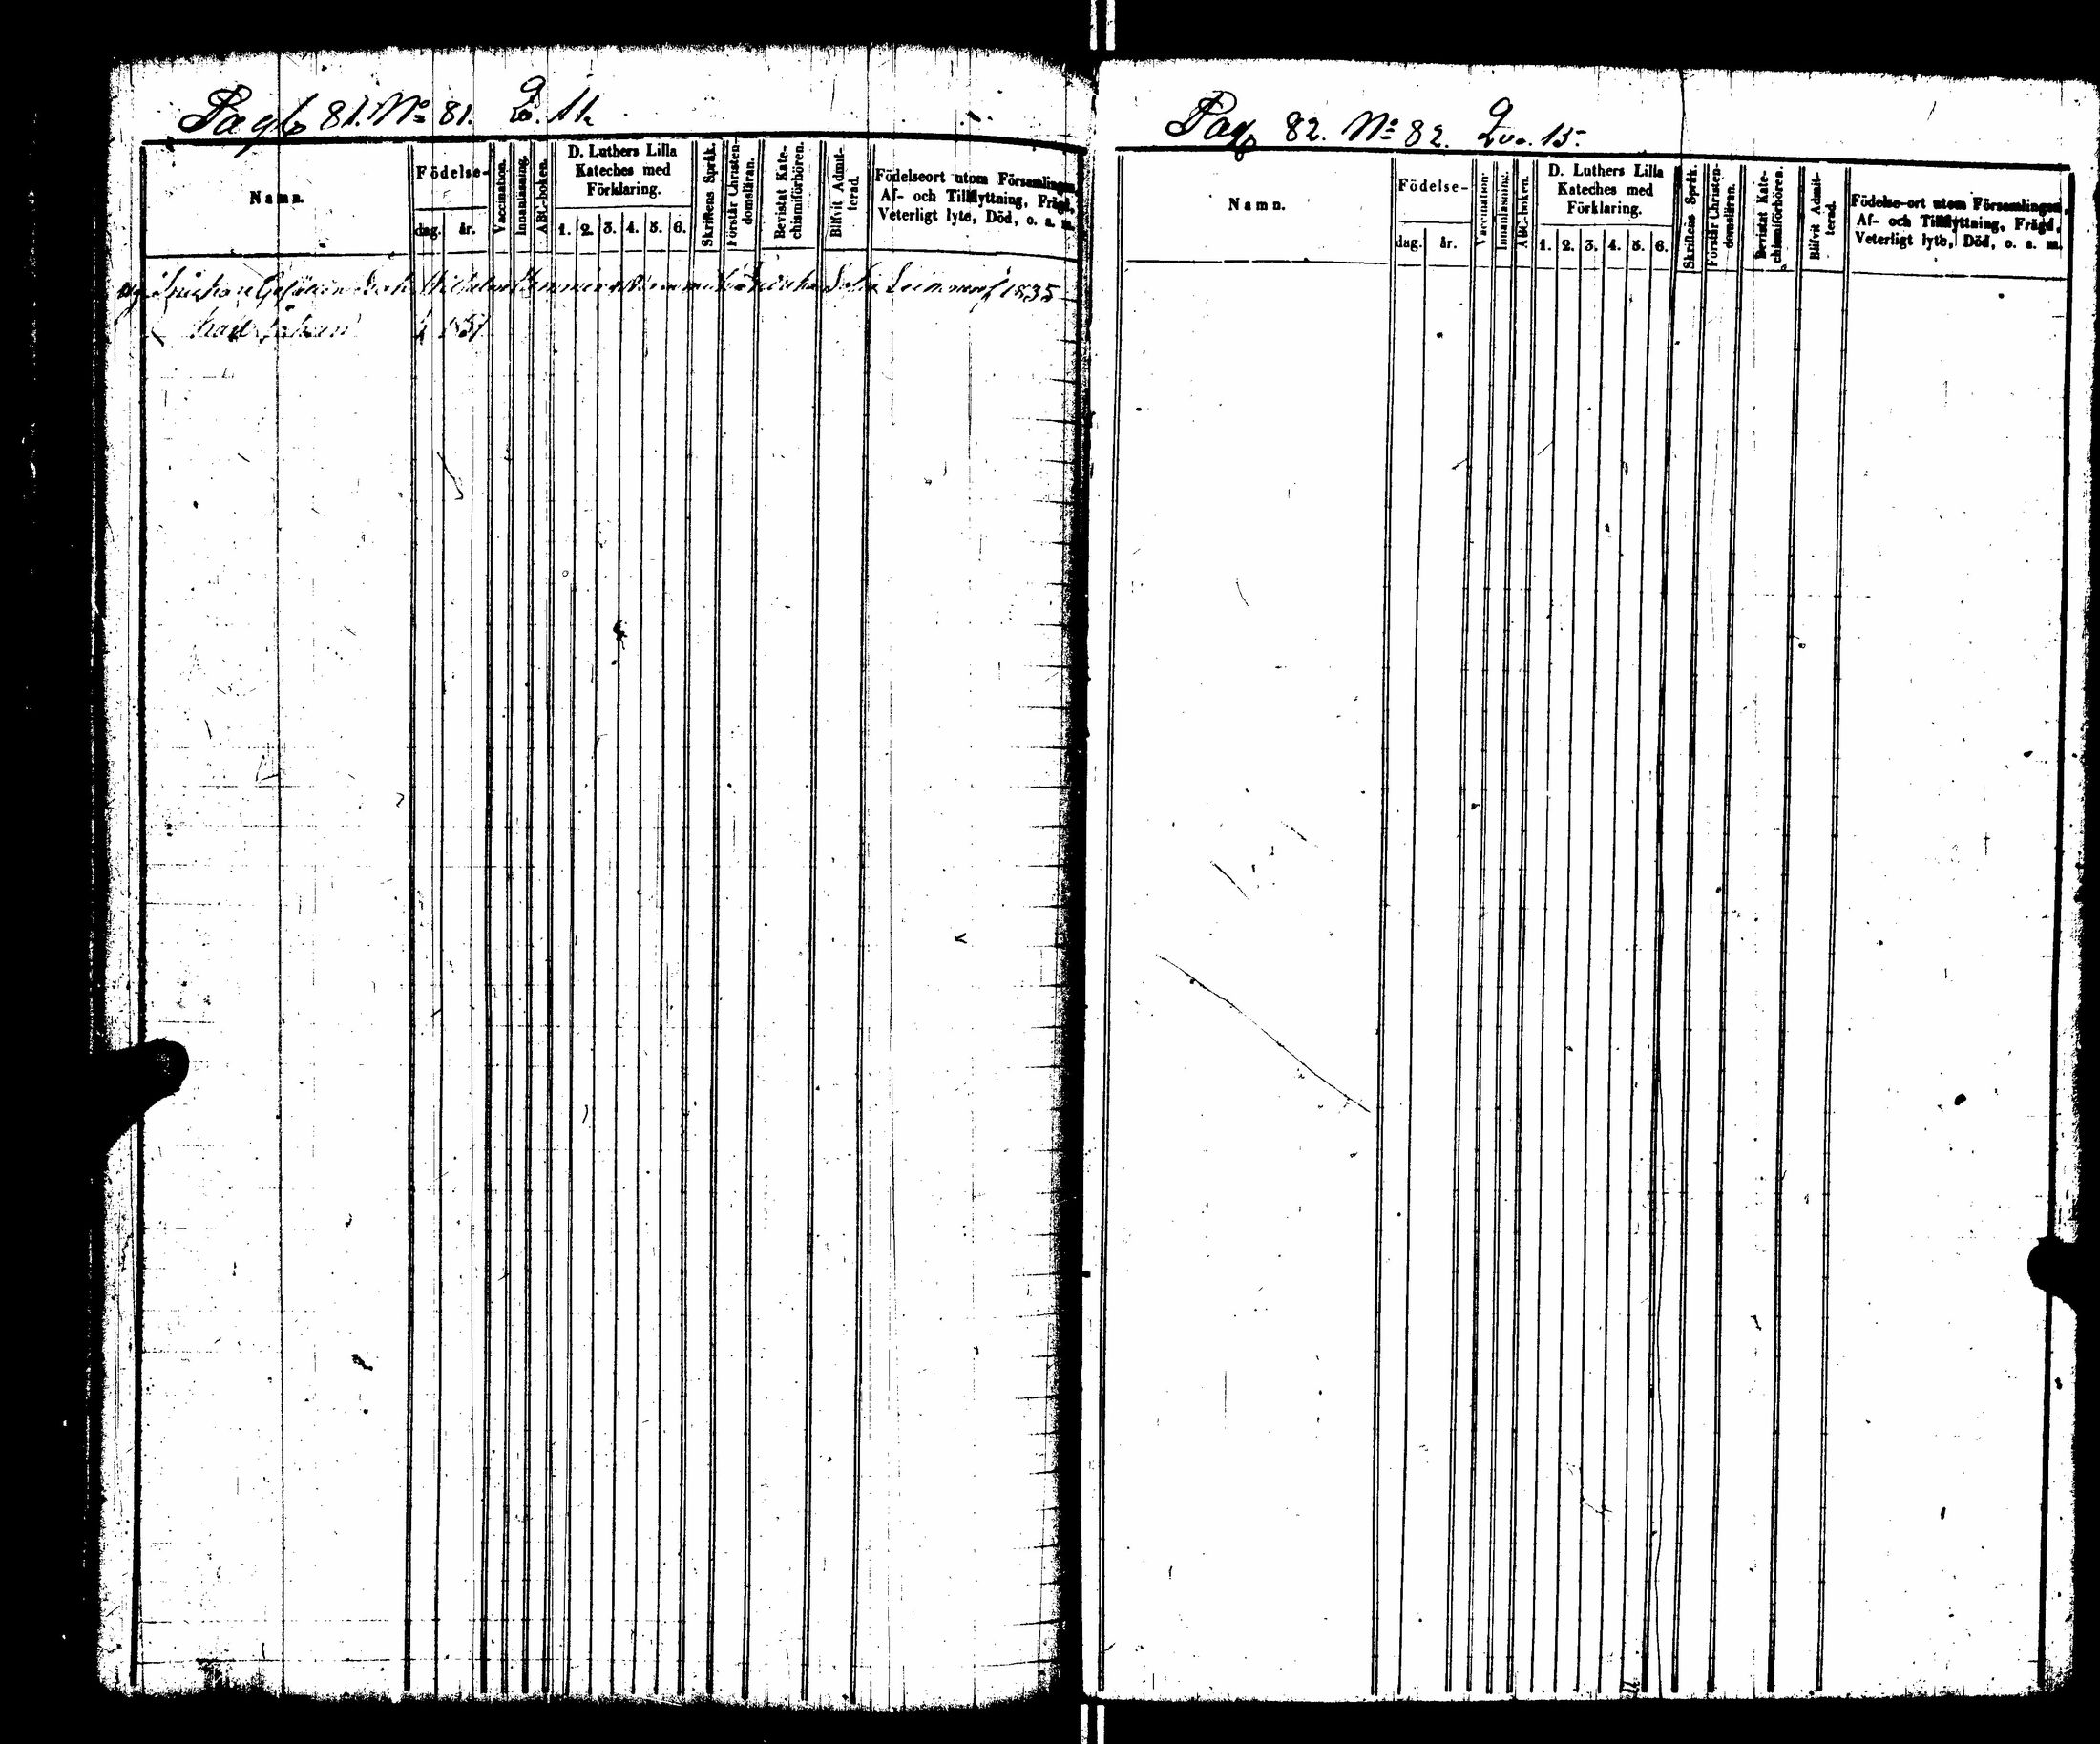 Pag 81. No 81. Qv. 14.
Namn.
Födelse-
dag. år.
Vaccination.
Innanläsning.
ABC-boken.
D. Luthers Lilla
Kateches med
Förklaring.
1. 2. 3. 4. 5. 6.
Skriftens Språk.
Förstår Christen-
domsläran.
Bevistat Kate-
chismiförhören.
Blifvit Admit-
terad.
Födelseort utom Församlingen,
Af- och Tillflyttning, Frägd,
Veterligt lyte, Död, o. s. m.
1835
Johan
Pag 82. No 82. Qv. 15.
Namn.
Födelse-
dag. år.
Vaccination.
Innanläsning.
ABC-boken.
D. Luthers Lilla
Kateches med
Förklaring.
1. 2. 3. 4. 5. 6.
Skriftens Språk.
Förstår Christen-
domsläran.
Bevistat Kate-
chismiförhören.
Blifvit Admit-
terad.
Födelse-ort utom Församlingen,
Af- och Tillflyttning, Frägd,
Veterligt lyte, Död, o. s. m.